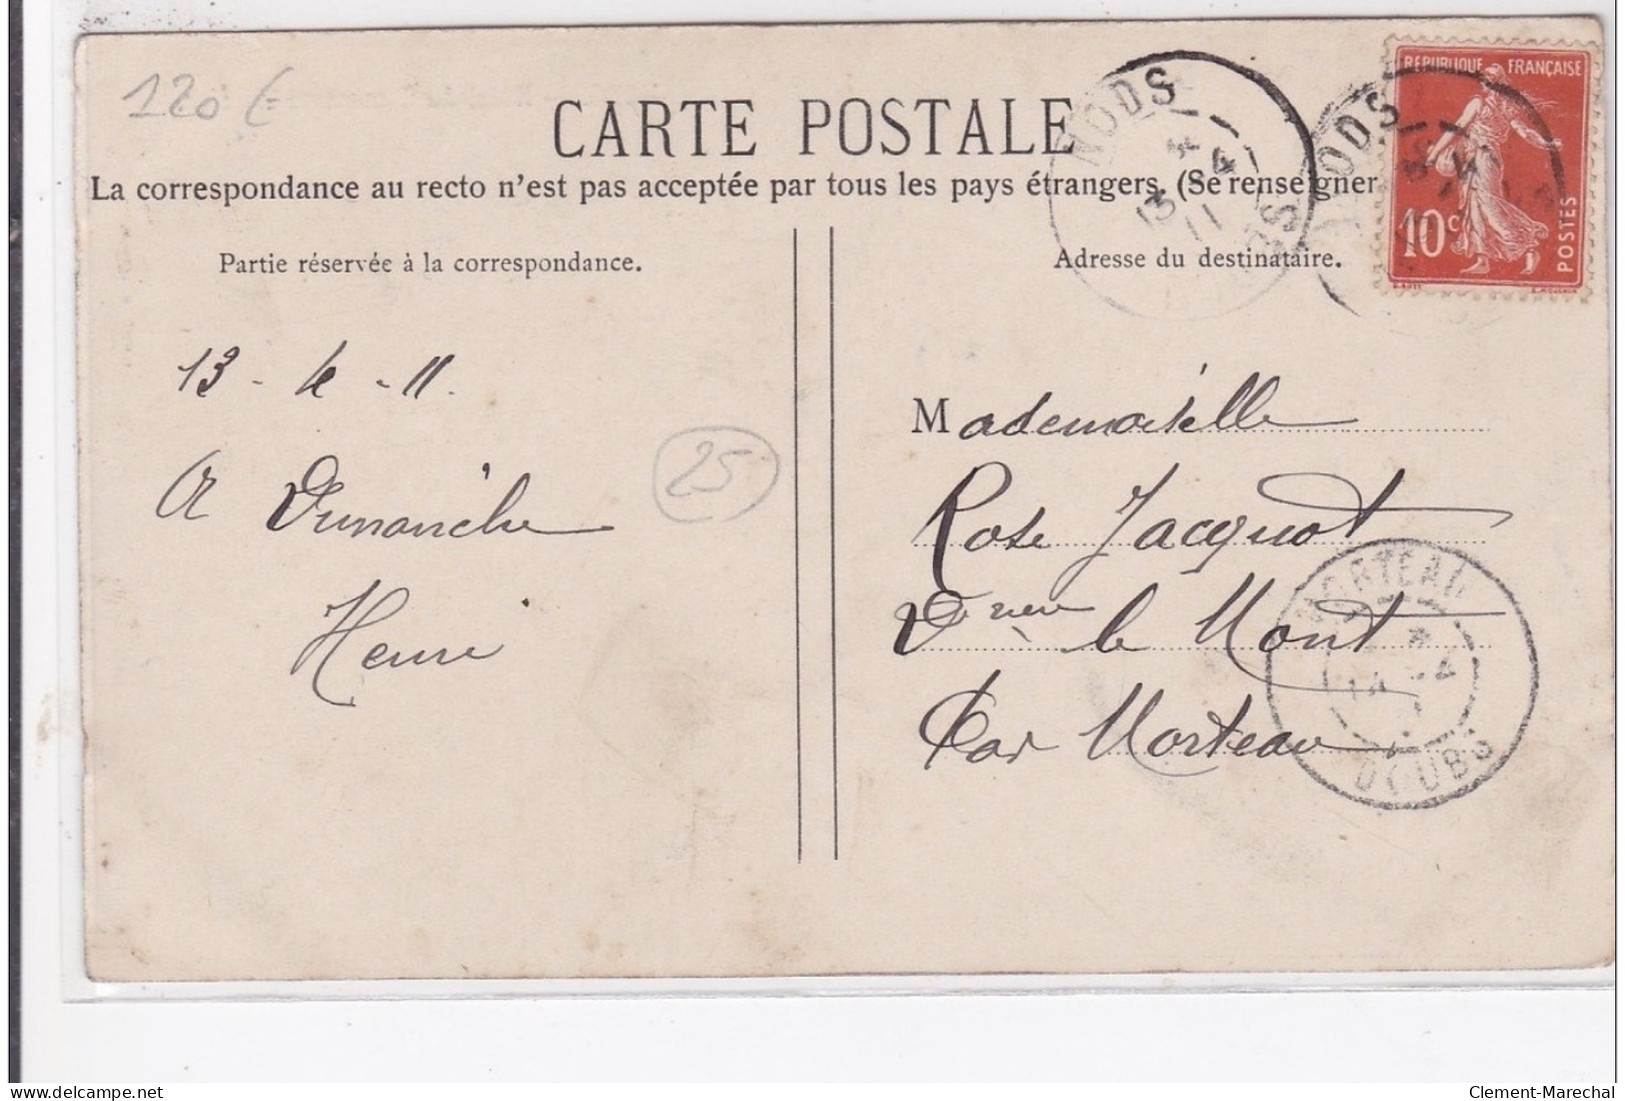 120 €
CARTE POSTALE
La correspondance au recto n'est pas acceptée par tous les pays étrangers. (Se renseigner
Partie réservée à la correspondance.
Adresse du destinataire.
NODS
13 4
11
DOUBS
NODS
RÉPUBLIQUE FRANÇAISE
10c
POSTES
13 - 4 - 11.
A Dimanche
Henri
25
Mademoiselle
Rose Jacquot
le Mont
Par Morteau
MORTEAU
14 -4
DOUBS
Clement-Marechal